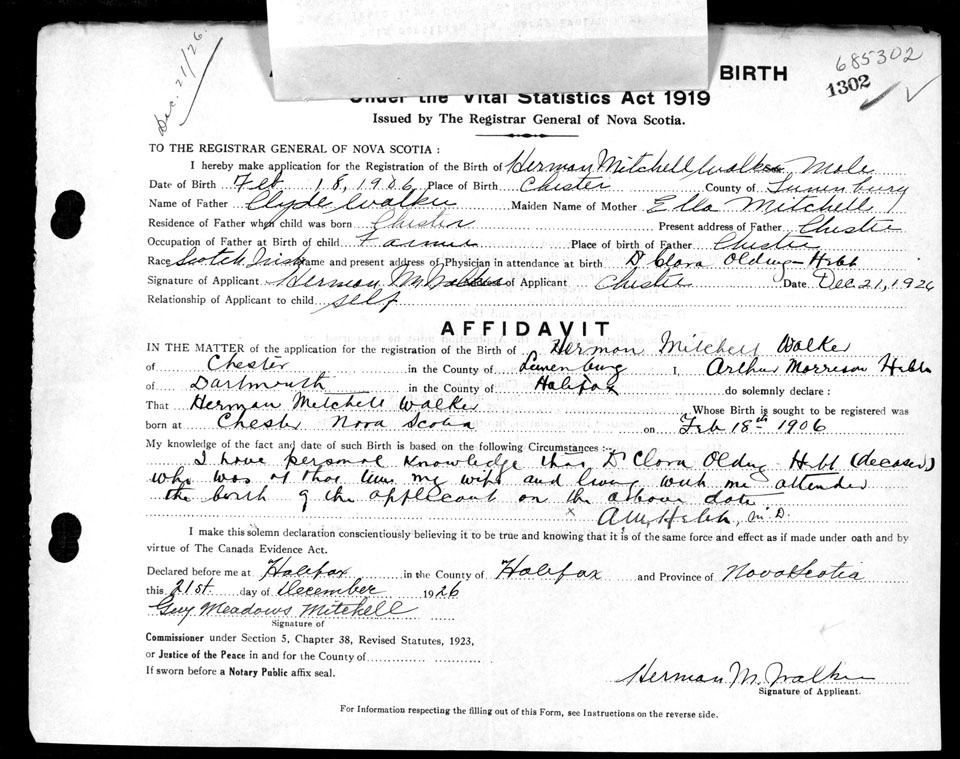 Dec. 21/26.
685302
1302
BIRTH
Under the Vital Statistics Act 1919
Issued by The Registrar General of Nova Scotia.
TO THE REGISTRAR GENERAL OF NOVA SCOTIA :
I hereby make application for the Registration of the Birth of Herman Mitchell Walker Male
Date of Birth Feb 18, 1906 Place of Birth Chester County of Lunenburg
Name of Father Clyde Walker Maiden Name of Mother Ella Mitchell
Residence of Father when child was born Chester Present address of Father Chester
Occupation of Father at Birth of child Farmer Place of birth of Father Chester
Race Scotch Irish Name and present address of Physician in attendance at birth Dr Clora Olding-Hebb
Signature of Applicant Herman M. Walker of Applicant Chester Date Dec. 21, 1926
Relationship of Applicant to child self
AFFIDAVIT
IN THE MATTER of the application for the registration of the Birth of Herman Mitchell Walker
of Chester in the County of Lunenburg I, Arthur Morrison Hebb
of Dartmouth in the County of Halifax do solemnly declare :
That Herman Mitchell Walker Whose Birth is sought to be registered was
born at Chester Nova Scotia on Feb 18th 1906
My knowledge of the fact and date of such Birth is based on the following Circumstances :
I have personal knowledge that Dr Clora Olding-Hebb (deceased)
who was at that time my wife and living with me attended
the birth of the applicant on the above date
x A M, Hebb, M. D.
I make this solemn declaration conscientiously believing it to be true and knowing that it is of the same force and effect as if made under oath and by
virtue of The Canada Evidence Act.
Declared before me at Halifax in the County of Halifax and Province of Nova Scotia
this 21st. day of December 1926
Guy Meadows Mitchell
Signature of
Commissioner under Section 5, Chapter 38, Revised Statutes, 1923,
or Justice of the Peace in and for the County of
If sworn before a Notary Public affix seal.
Herman M. Walker
Signature of Applicant.
For Information respecting the filling out of this Form, see Instructions on the reverse side.